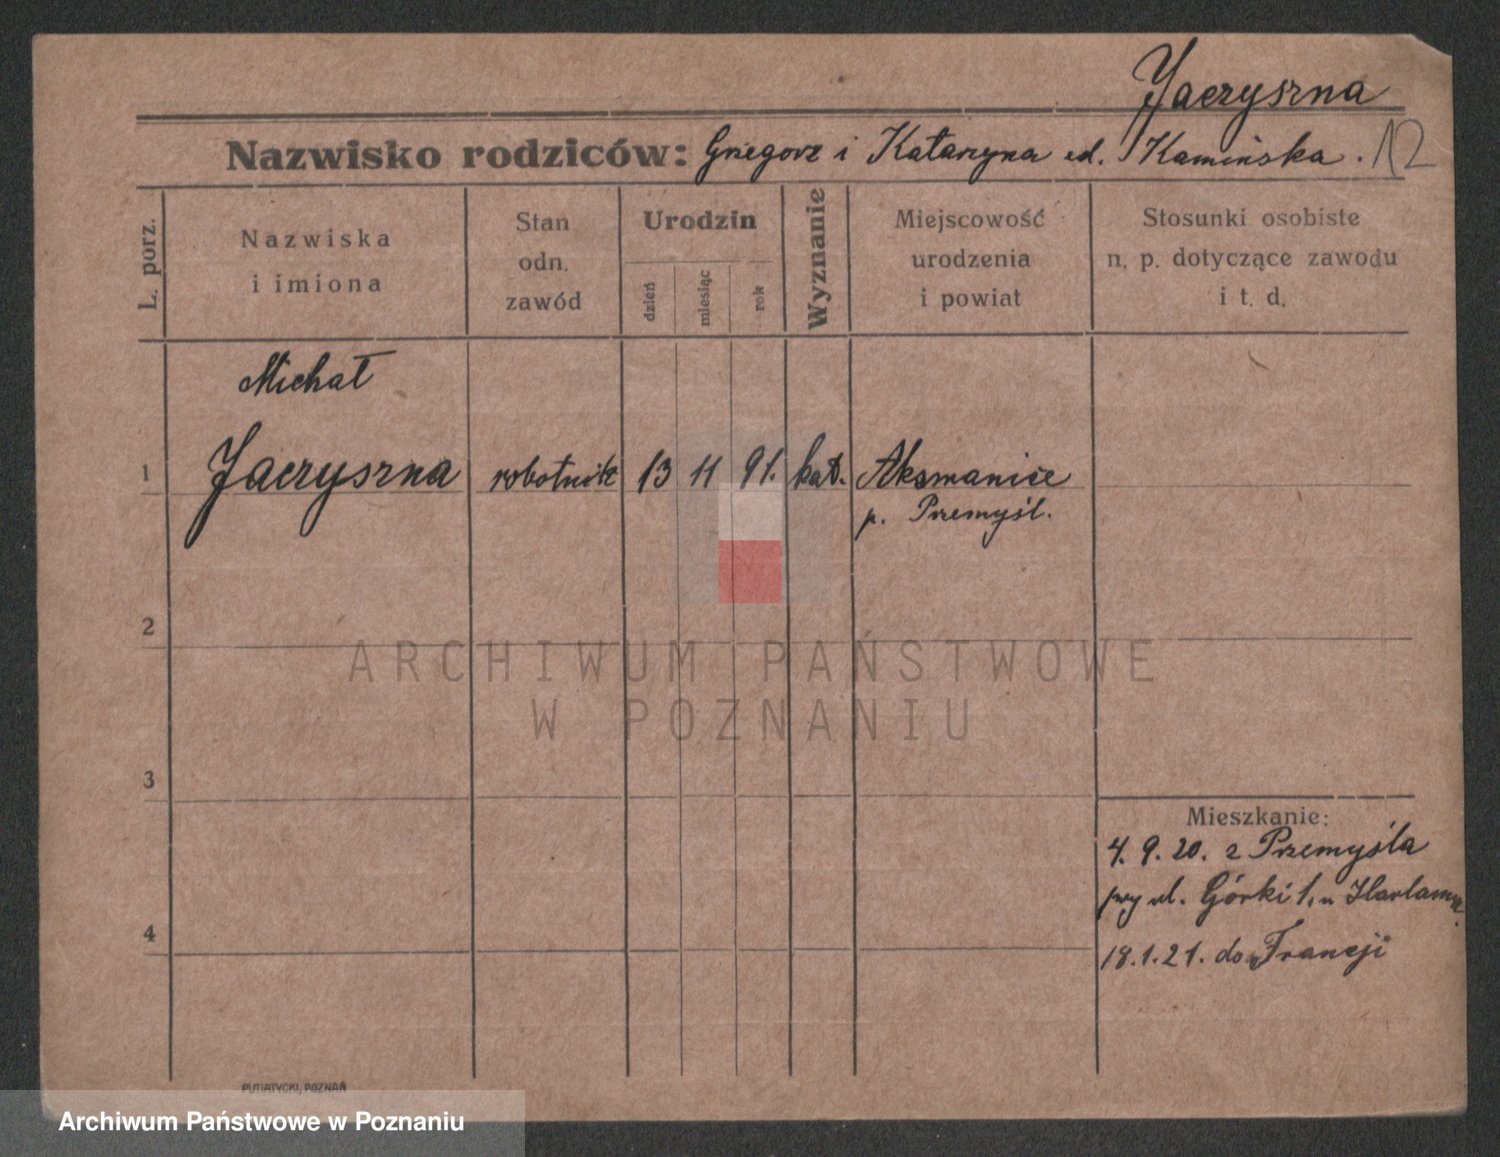 Jaczyszna
Nazwisko rodziców: Grzegorz i Katarzyna zd. Kamińska. 12
L. porz.
Nazwiska
i imiona
Stan
odn.
zawód
Urodzin
dzień
miesiąc
rok
Wyznanie
Miejscowość
urodzenia
i powiat
Stosunki osobiste
n. p. dotyczące zawodu
i t. d.
Michał
1 Jaczyszna robotnik 13 11 91. kat. Aksmanice
p. Przemyśl.
2
ARCHIWUM PAŃSTWOWE
W POZNANIU
3
Mieszkanie:
4. 9. 20. z Przemyśla
przy ul. Górki 1, u
4
18. 1. 21. do Francji
PUTIATYCKI, POZNAŃ
Archiwum Państwowe w Poznaniu